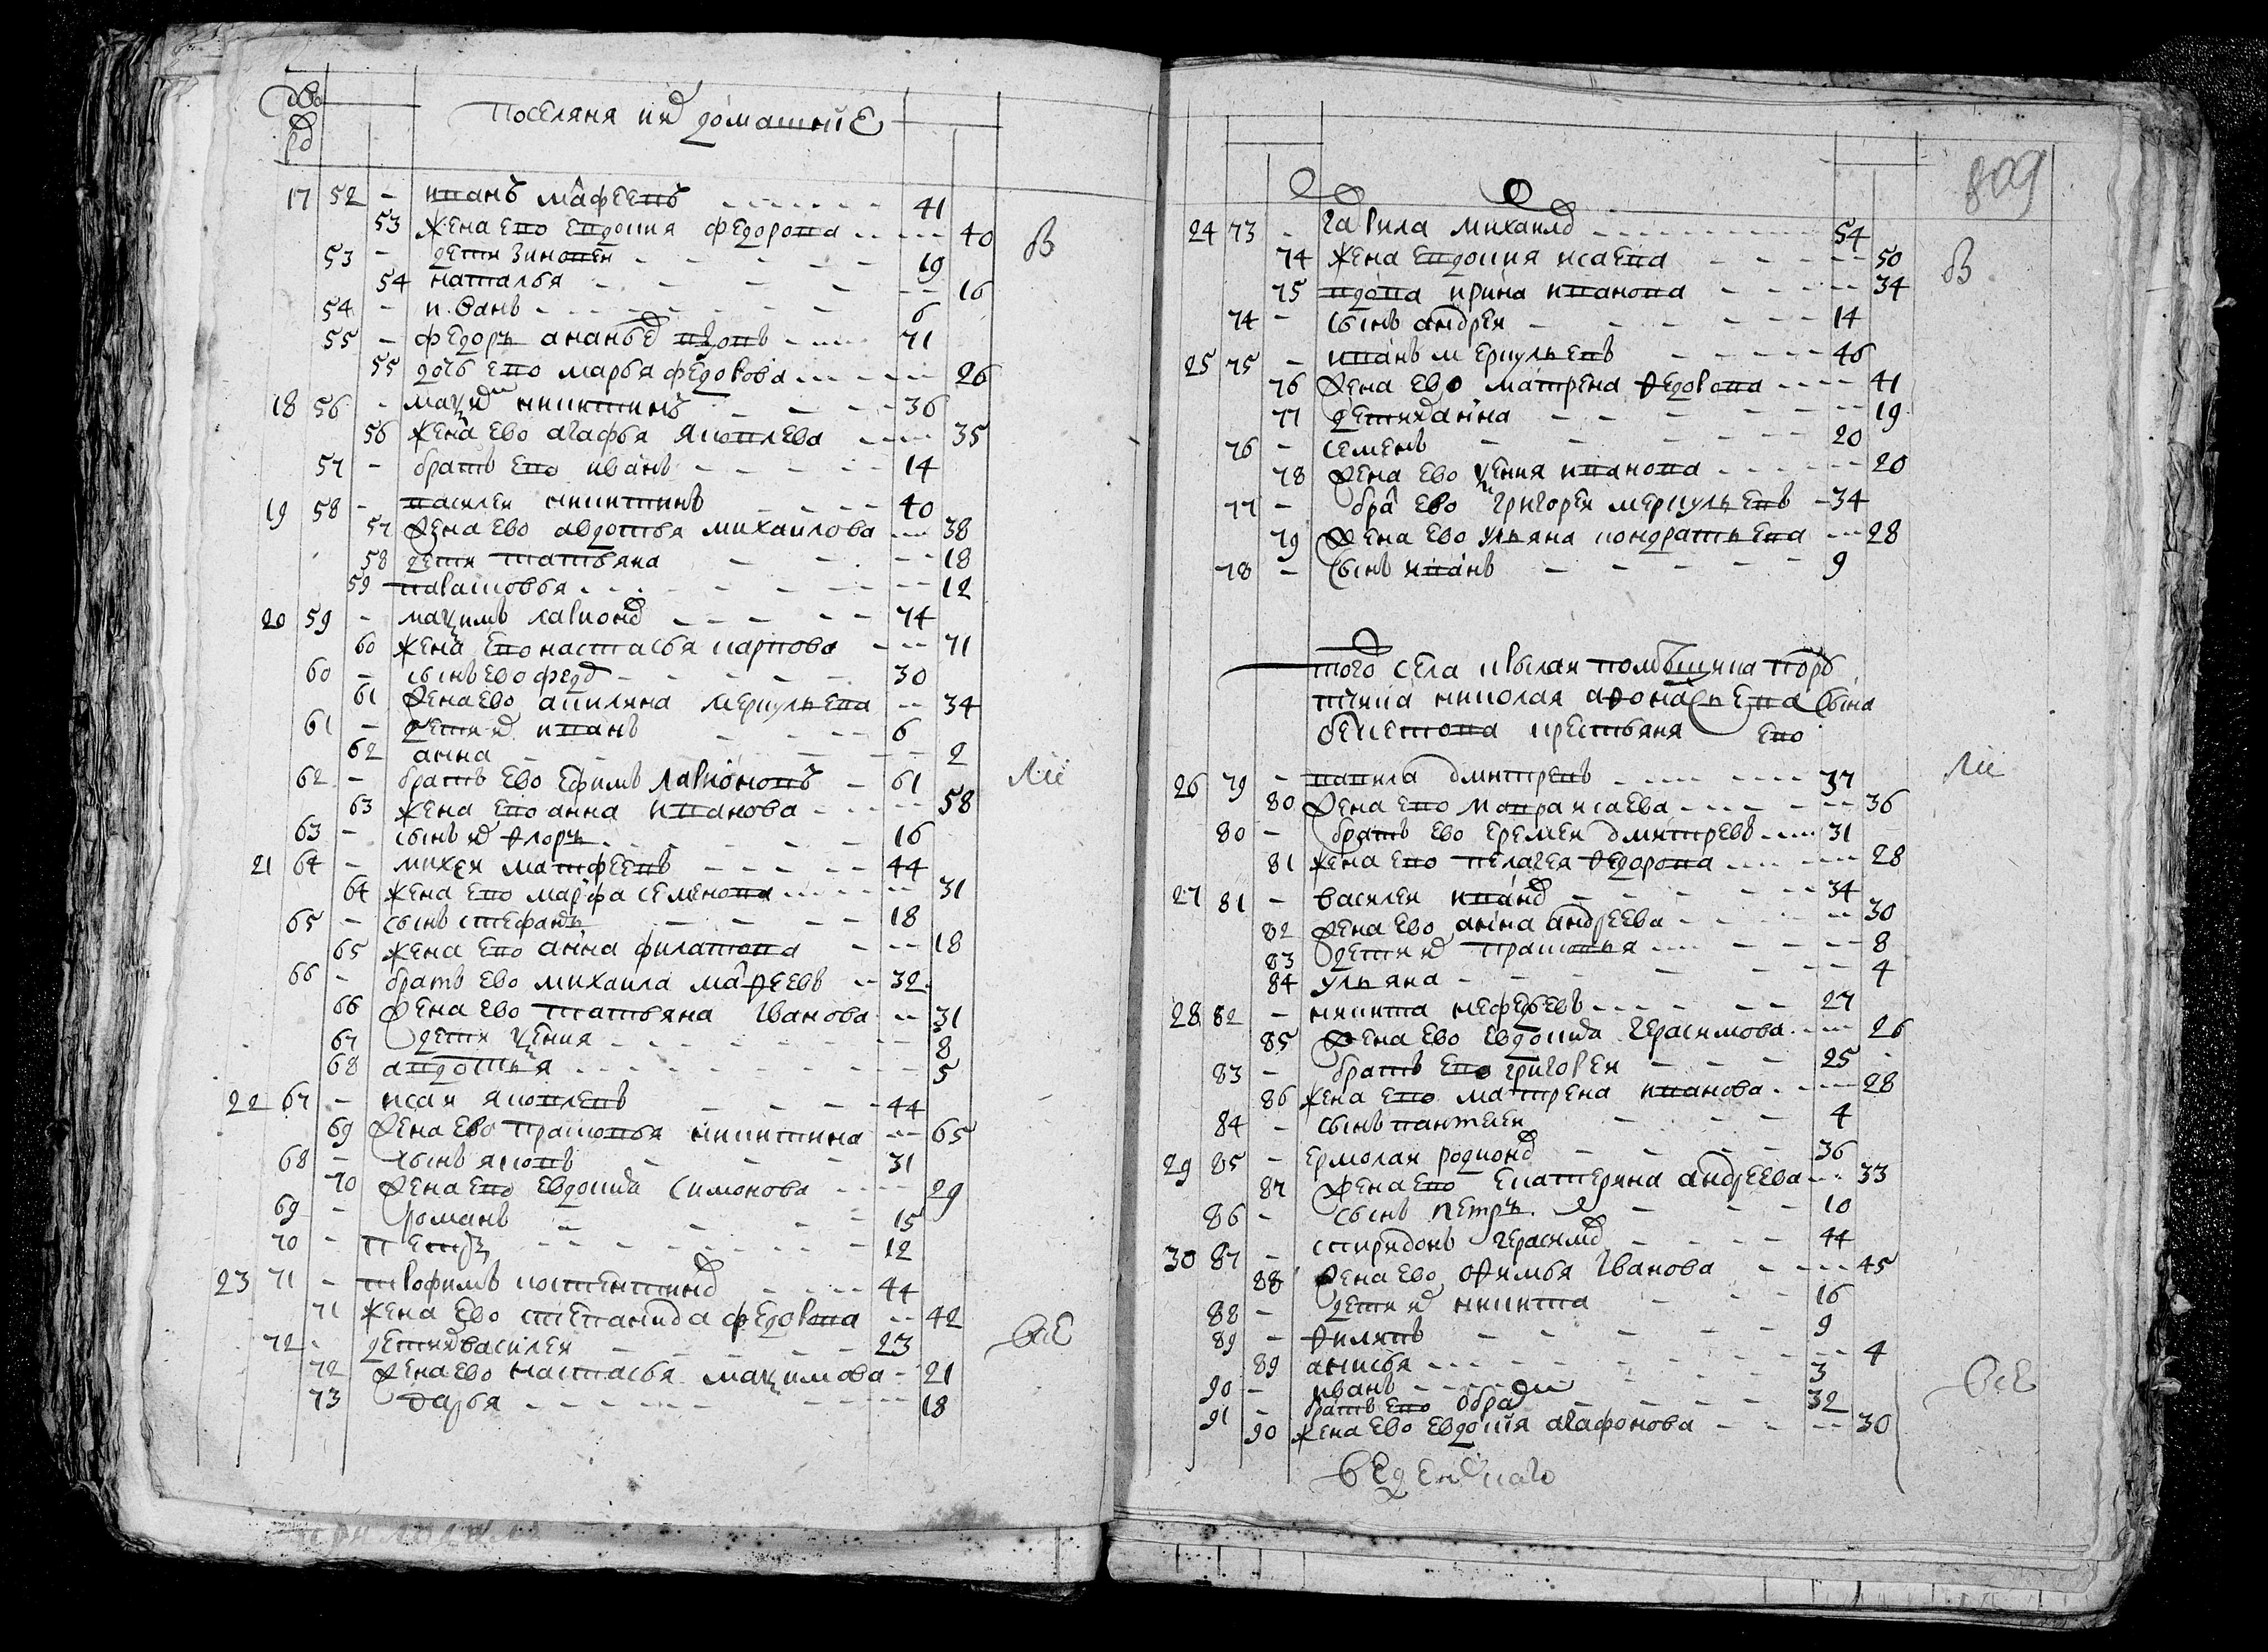 дво
рѡ
поселяня их домашние
17 52 - иванъ мафеевъ 41
53 жена ево евдокия федорова 40
в
53 - дети зиновеи 19
54 наталья 16
54 - иванъ 6
55 - федоръ ананьев вдовъ 71
55 дочь ево марья федорова 26
18 56 - никитинъ 36
56 жена ево агафья яковлева 35
57 - братъ ево иванъ 14
19 58 - василеи никитинъ 40
57 жена ево авдотья михаилова 38
58 дети татьяна 18
59 парасковья 12
20 59 - маѯимъ ларионов 74
60 жена ево настасья карпова 71
60 - сынъ ево федо 30
61 жена ево акилина меркульева 34
61 - дети их иванъ 6
62 анна 2
62 - братъ ево ефимъ ларионовъ 61
лис
63 жена ево анна иванова 58
63 - сынъ их флоръ 16
21 64 - михеи матфеевъ 44
64 жена ево марфа семенова 31
65 - сынъ стефанъ 18
65 жена ево анна филатова 18
66 - братъ ево михаила мафеевъ 32
66 жена ево татьяна іванова 31
67 дети ѯения 8
68 авдотья 5
22 67 - исаи яковлевъ 44
69 жена ево прасковья никитина 65
68 - сынъ яковъ 31
70 жена ево евдокия симонова 29
69 - романъ 15
70 - петръ 12
23 71 - трофимъ костентинов 44
71 жена ево степанида федорова 42
72 - дети их василеи 23
все
72 жена ево настасья маѯимова 21
73 дарья 18
809
24 73 - гаврила михаилов 54
74 жена евдокия исаева 50
в
75 вдова ирина иванова 34
74 - сынъ андреи 14
25 75 - иванъ меркульевъ 46
76 жена ево матрена федорова 41
77 дети их анна 19
76 - семенъ 20
78 жена ево ѯения иванова 20
77 - бра ево григореи меркульевъ 34
79 жена ево ульяна кондратьева 28
78 - сынъ иванъ 9
того села крылая помѣщика пору
тчика николая афонасьева сына
бекетова крестьяня ево
26 79 - вавила дмитревъ 37
лис
80 жена ево мавра исаева 36
80 - братъ ево еремеи дмитревъ 31
81 жена ево пелагея федорова 28
27 81 - василеи иванов 34
82 жена ево анна андреева 30
83 дети их прасковья 8
84 ульяна 4
28 82 - никита нефедьевъ 27
85 жена ево евдокия герасимова 26
83 - братъ ево григореи 25
86 жена ево матрена иванова 28
84 - сынъ пантелеи 4
29 85 - ермолаи родионов 36
87 жена ево екатерина андреева 33
86 - сынъ петръ 10
30 87 - спиридонъ герасимов 44
88 жена ево офимья іванова 45
88 - дети их никита 16
89 - филипъ 9
89 анисья 4
90 - иванъ 3
все
91 - братъ ево 32
90 жена ево евдокия агафонова 30